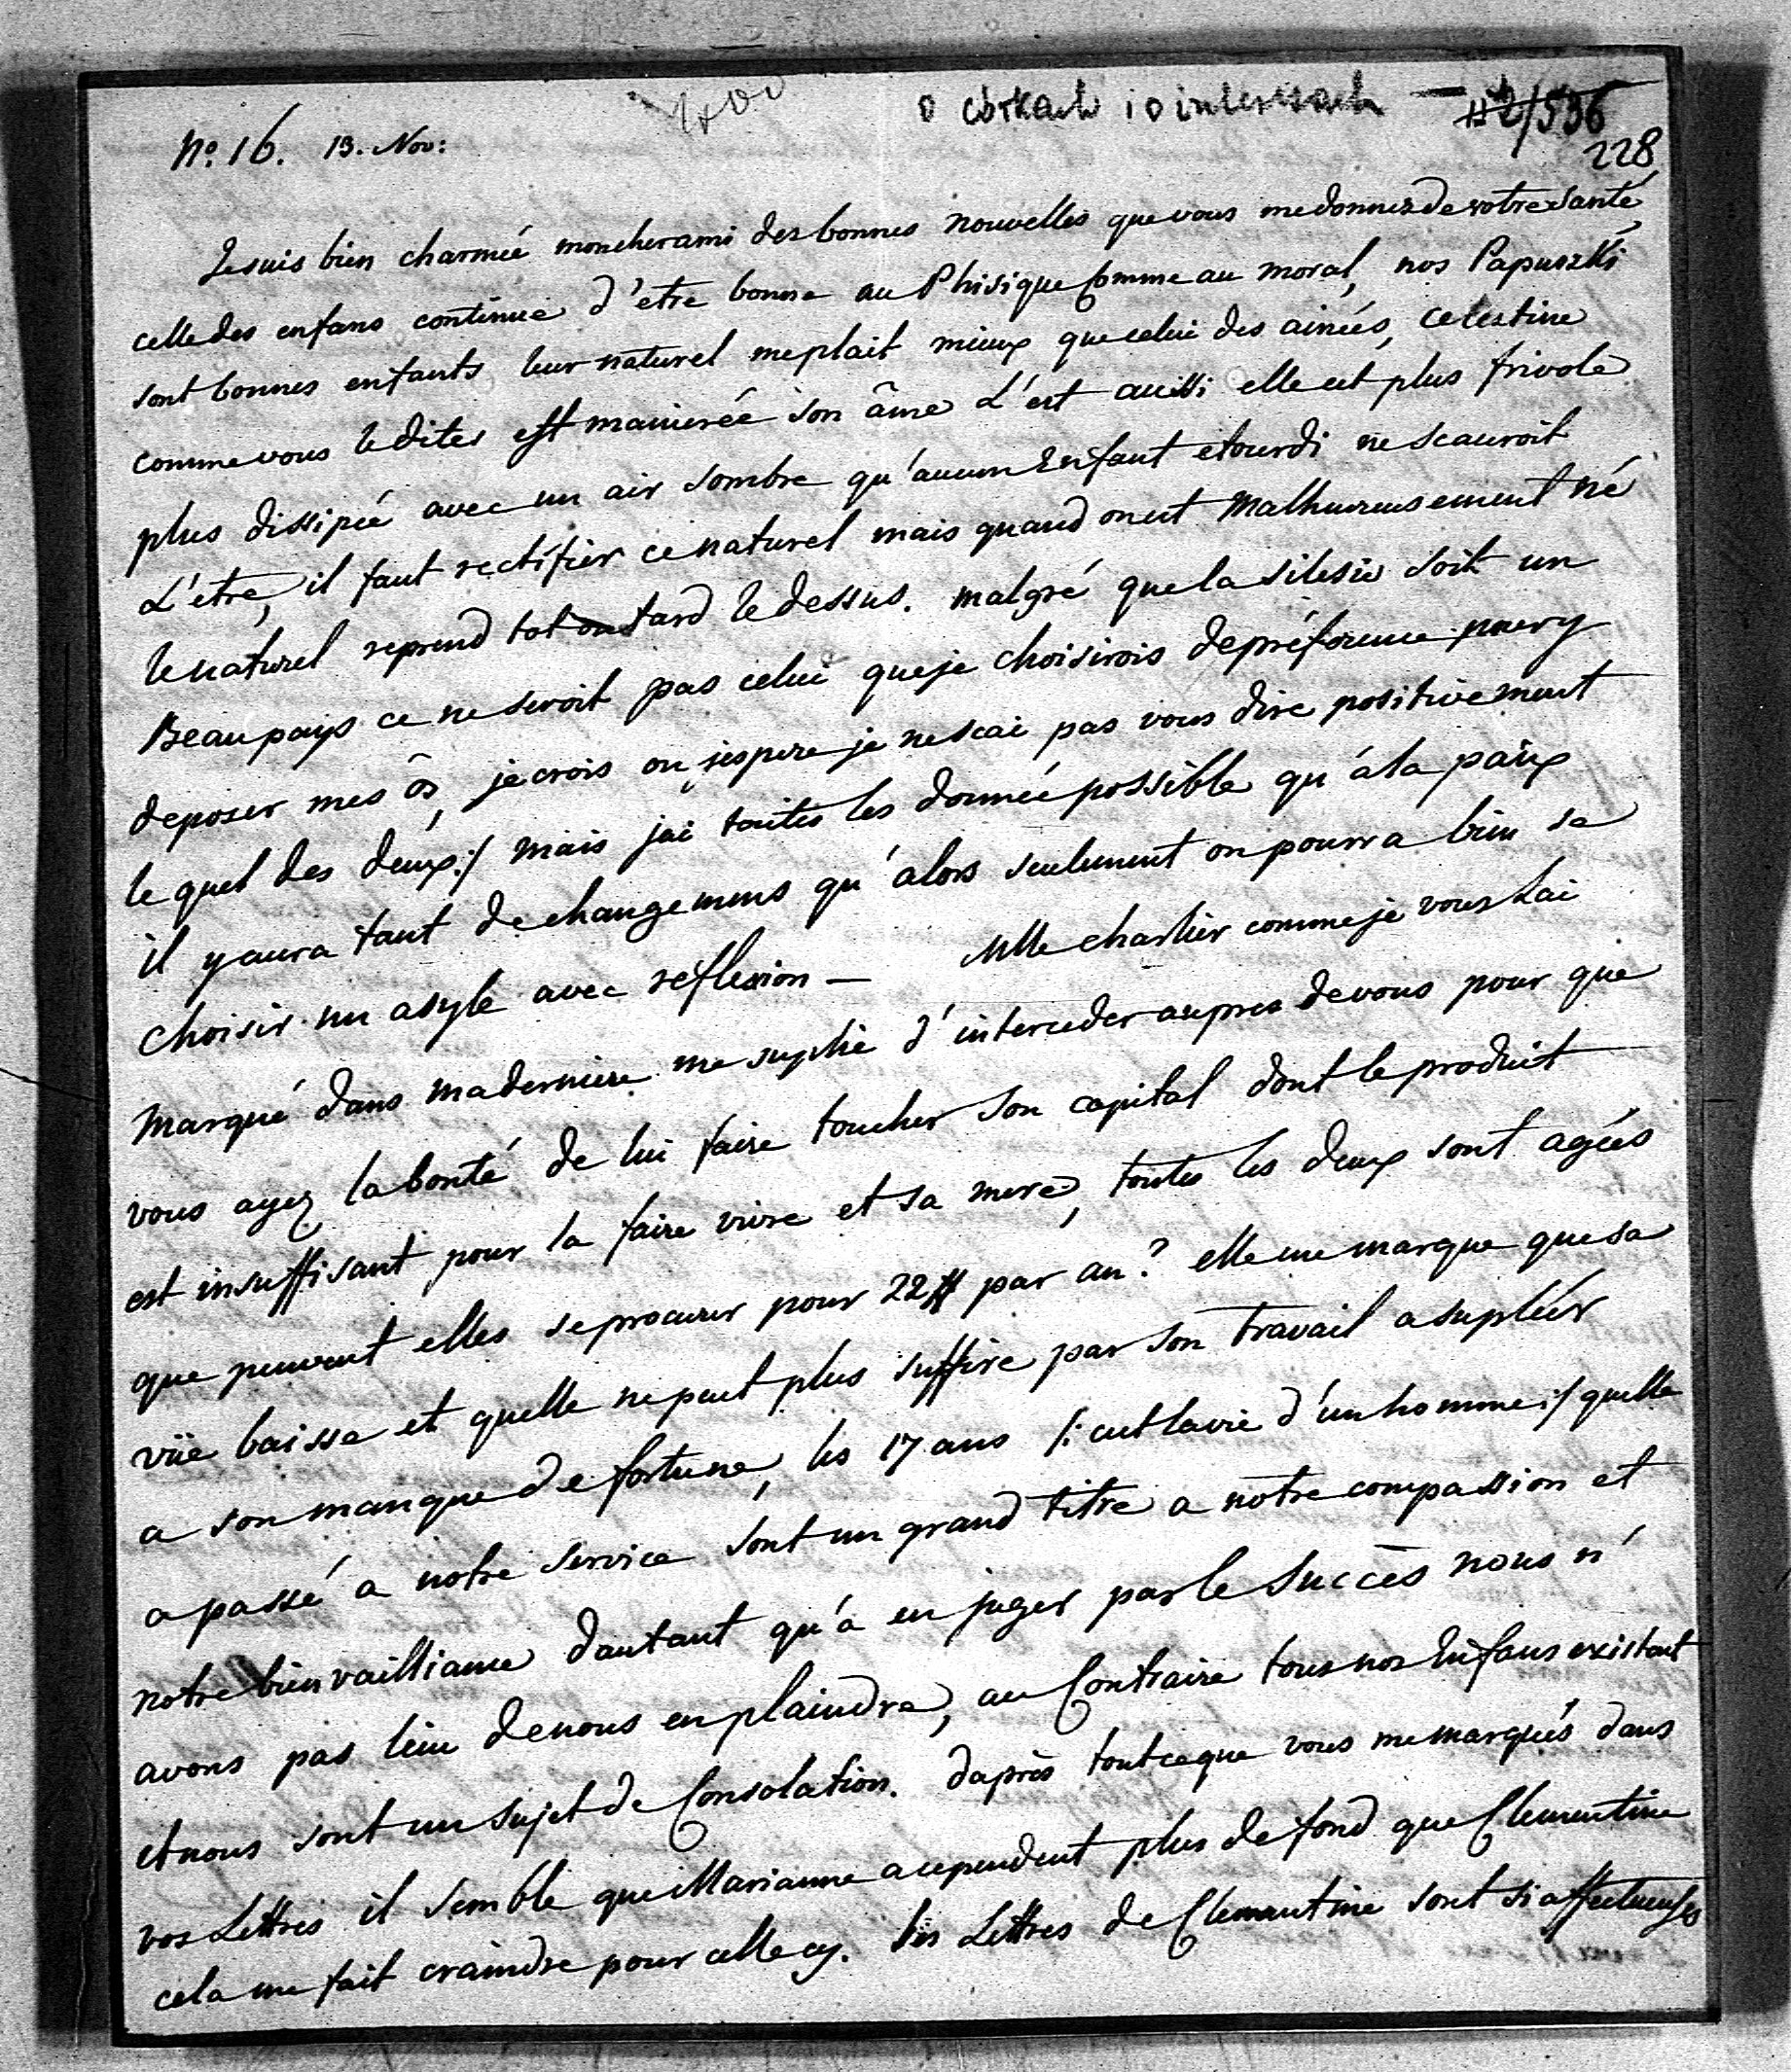 o córkach i o interesach — 2/536
228
No. 16. 13. Nov:
Je suis bien charmée mon cher ami des bonnes nouvelles que vous me donnés de votre santé
celle des enfans continue d'etre bonne au Phisique Comme au moral, nos Papuszki
sont bonnes enfants leur naturel me plait mieux que celui des ainées, celestine
comme vous le dites est manierée son âme l'est aussi elle est plus frivole
plus dissipée avec un air sombre qu'aucun Enfant etourdi ne scauroit
l'etre, il faut rectifier ce naturel mais quand on est Malheureusement né
le naturel reprend tot ou tard le dessus. malgré que la silesie soit un
Beau pays ce ne seroit pas celui que je choisirois de préférence pour y
deposer mes ôs, je crois ou jespere je ne scai pas vous dire positivement
le quel des deux :/ mais jai toutes les donnée possible qu'à la paix
il y aura tant de changemens qu'alors seulement on pourra bien se
choisir un asyle avec reflexion — Mlle charlier comme je vous lai
marqué dans ma derniere me suplie d'interceder aupres de vous pour que
vous ayez la bonté de lui faire toucher son capital dont le produit
est insuffisant pour la faire vivre et sa mere, toutes les deux sont agées
que peuvent elles se procurer pour 22# par an? elle me marque que sa
vüe baisse et quelle ne peut plus suffire par son travail a supléer
a son manque de fortune, les 17 ans /: cest la vie d'un homme :/ quelle
a passé a notre service sont un grand titre a notre compassion et
notre bienvailliance dautant qu'à en juger par le Succès nous n'
avons pas lieu de nous en plaindre, au Contraire tous nos Enfans existant
et nous sont un sujet de Consolation. daprès tout ce que vous me marqués dans
vos Lettres il semble que Marianne a cependent plus de fond que Clementine
cela me fait craindre pour celle cy. les Lettres de Clementine sont si affectueuses